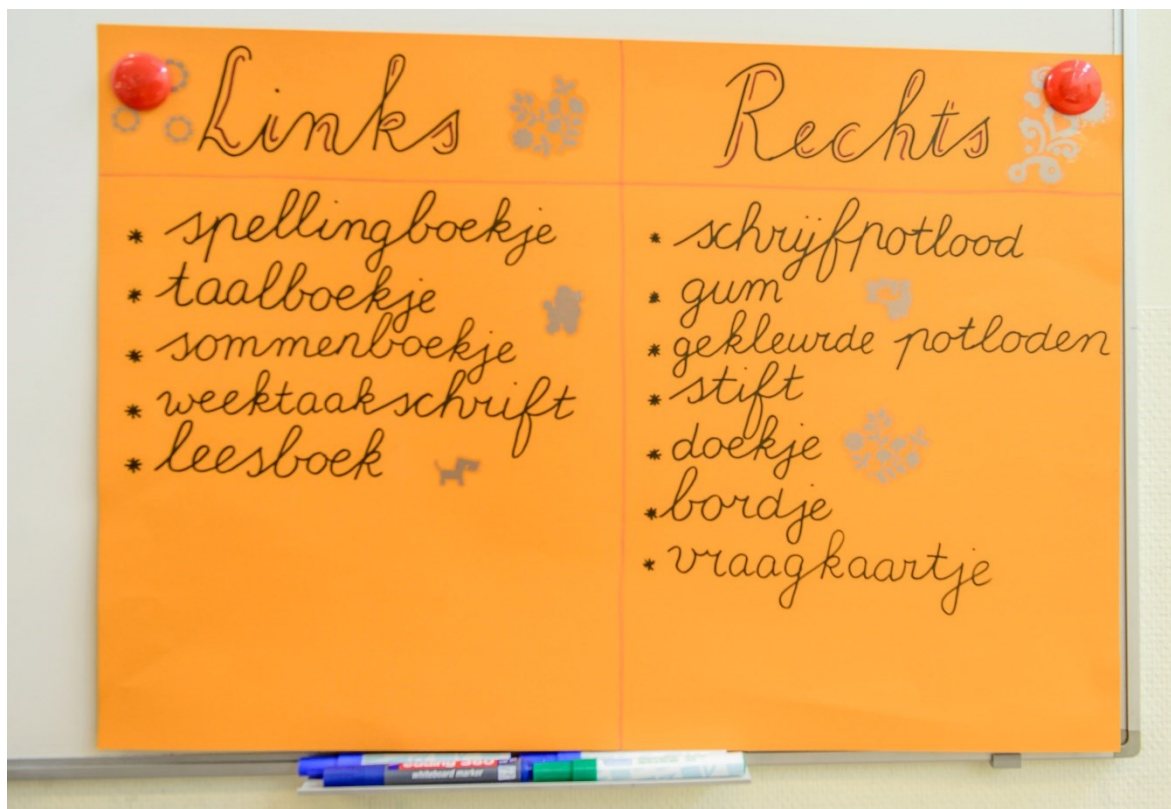 Links
* spellingboekje
* taalboekje
* sommenboekje
* weektaakschrift
* leesboek
Rechts
* schrijfpotlood
* gum
* gekleurde potloden
* stift
* doekje
* bordje
* vraagkaartje
whiteboard marker